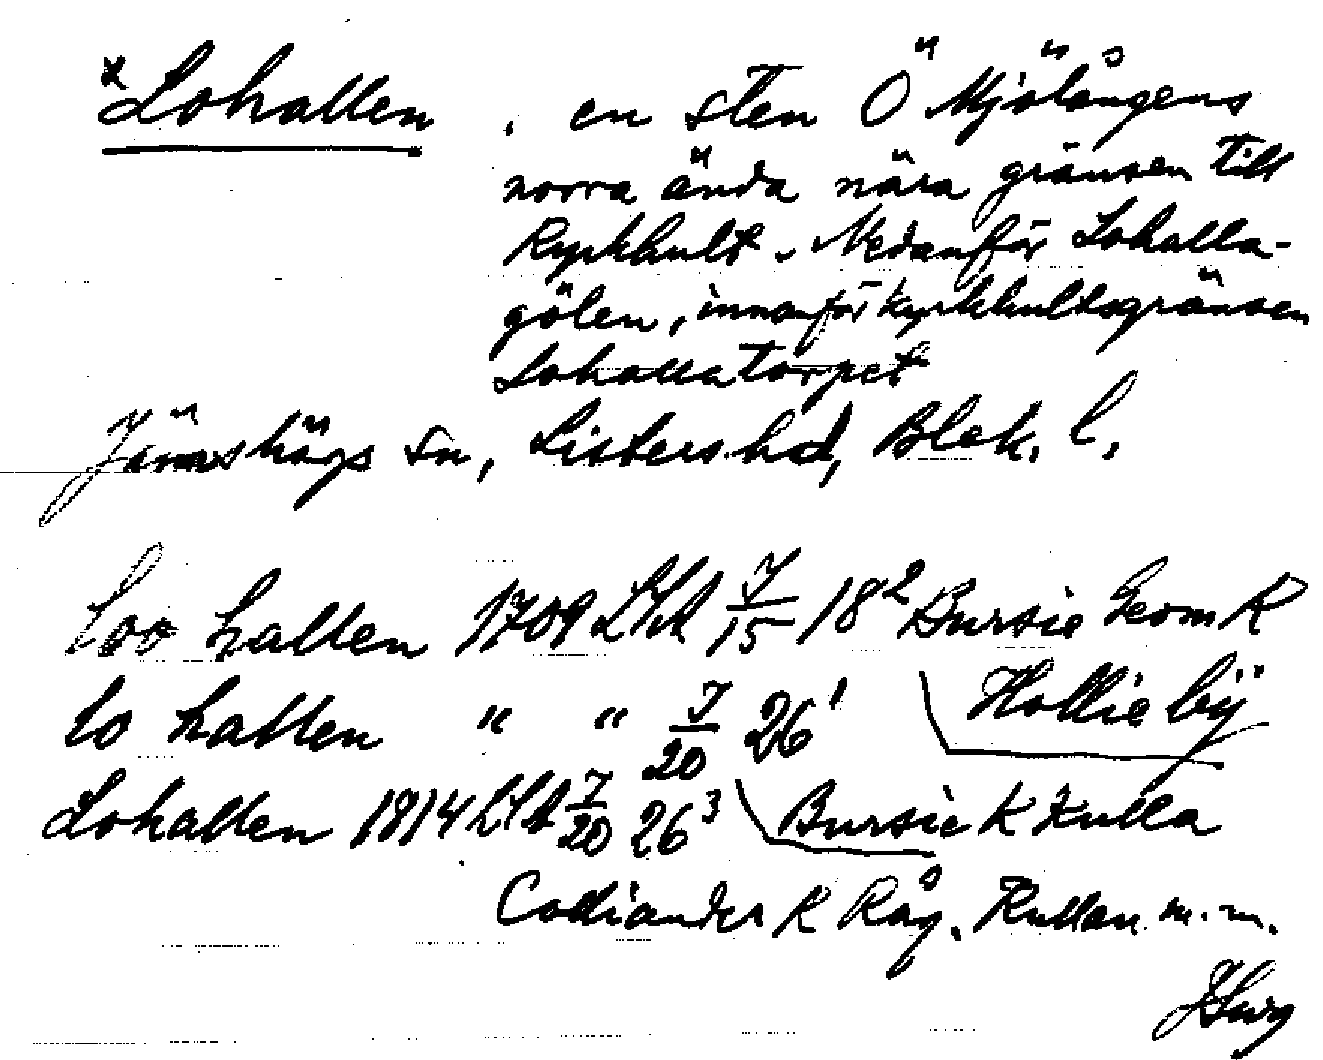 *Lohallen, en sten Ö Mjölångens
norra ända nära gränsen till
Kyrkhult. Nedanför Lohalla-
gölen, innanför kyrkhultsgränsen
Lohallatorpet
Jämshögs sn, Listers hd, Blek. l.
Loo hallen 1709 LSA J/15 18² Bursie Geom K
Lo hallen " " J/20 26¹ Hollie bÿ
Lohallen 1814 LSA J/20 26³ Bursie K Kulla
Calliander K Råg. Kullan m.m.